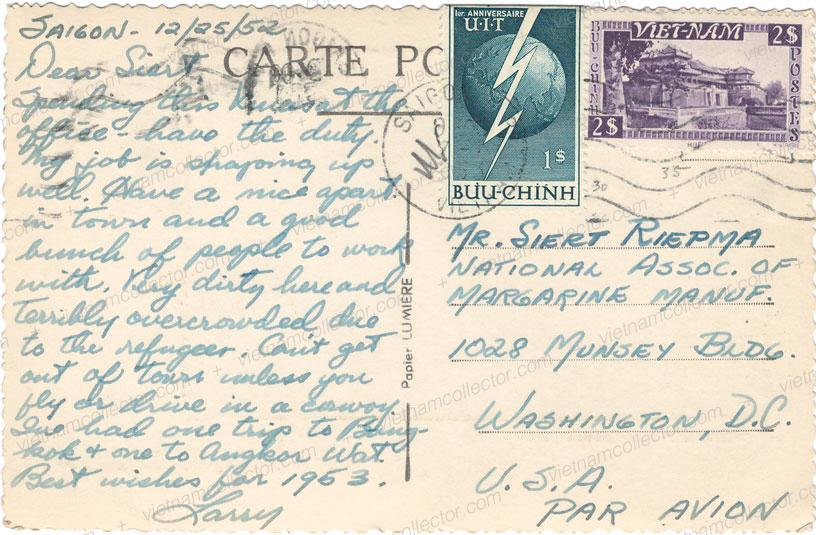 SAIGON - 12/25/52
Dear Siert
Spending this Xmas at the
office - have the duty.
My job is shaping up
well. Have a nice apart.
in town and a good
bunch of people to work
with. Very dirty here and
terribly overcrowded due
to the refugees. Can't get
out of town unless you
fly or drive in a convoy.
I've had one trip to Bang-
kok + one to Angkor Wat.
Best wishes for 1953.
Larry
CARTE PO
Papier LUMIÈRE
1er. ANNIVERSAIRE
U·I·T
1$
BƯU-CHÍNH
VIET-NAM
2$
BUU-CHINH
POSTES
2$
SAIGO
VIET
30
35
MR. SIERT RIEPMA
NATIONAL ASSOC. OF
MARGARINE MANUF.
1028 MUNSEY BLDG.
WASHINGTON, D.C.
U.S.A.
PAR AVION
vietnamcollector.com